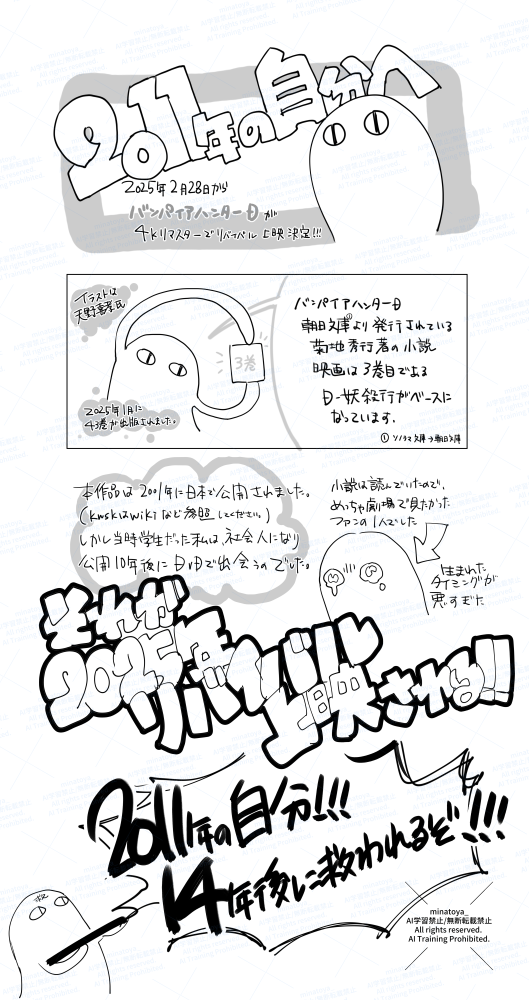 2011年の自分へ
2025年2月28日から
バンパイアハンターDが
4Kリマスターでリバイバル上映決定!!!
イラストは
天野喜孝氏
3巻
2025年1月に
43巻が出版されました。
バンパイアハンターD
朝日文庫①より発行されている
菊地秀行著の小説
映画は3巻目である
D-妖殺行がベースに
なっています。
①ソノラマ文庫→朝日文庫
本作品は2001年に日本で公開されました。
(kwskはwikiなど参照してください。)
しかし当時学生だった私は、社会人になり
公開10年後にDVDで出会うのでした。
小説は読んでいたので、
めっちゃ劇場で見たかった
ファンの1人でした
生まれた
タイミングが
悪すぎた
それが
2025年
リバイバル
上映される!!
2011年の自分!!!
14年後に救われるぞ!!!
minatoya_
AI学習禁止/無断転載禁止
All rights reserved.
AI Training Prohibited.